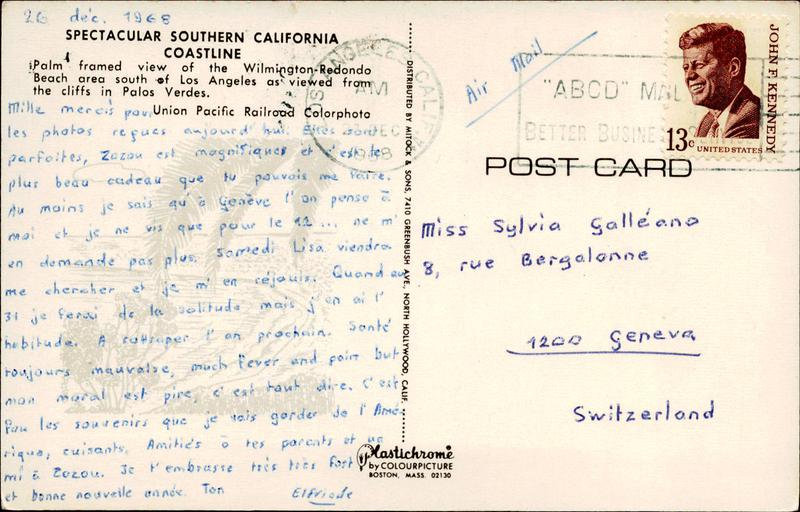 26 déc. 1968
SPECTACULAR SOUTHERN CALIFORNIA
COASTLINE
Palm framed view of the Wilmington-Redondo
Beach area south of Los Angeles as viewed from
the cliffs in Palos Verdes.
Union Pacific Railroad Colorphoto
Mille mercis pour
les photos reçues aujourd'hui. Elles sont
parfaites, Zozou est magnifiques et c'est le
plus beau cadeau que tu pouvais me faire.
Au moins je sais qu'à Genève l'on pense à
moi et je ne vis que pour le 12... ne m'
en demande pas plus. Samedi Lisa viendra
me chercher et je m'en réjouis. Quand au
31 je ferai de la solitude mais j'en ai l'
habitude. A rattraper l'an prochain. Santé
toujours mauvaise, much fever and pain but
mon moral est pire, c'est tout dire. C'est
fou les souvenirs que je vais garder de l'Amé-
rique, cuisants. Amitiés à tes parents et un
mi à Zozou. Je t'embrasse très très fort
et bonne nouvelle année. Ton Elfriede
DISTRIBUTED BY MITOCK & SONS, 7410 GREENBUSH AVE., NORTH HOLLYWOOD, CALIF.
Plastichrome
by COLOURPICTURE
BOSTON, MASS. 02130
LOS ANGELES, CALIF
AM
DEC
1968
"ABCD" MAIL
BETTER BUSINESS
Air Mail
JOHN F. KENNEDY
13c
UNITED STATES
POST CARD
Miss Sylvia Galléano
8, rue Bergalonne
1200 Geneva
Switzerland